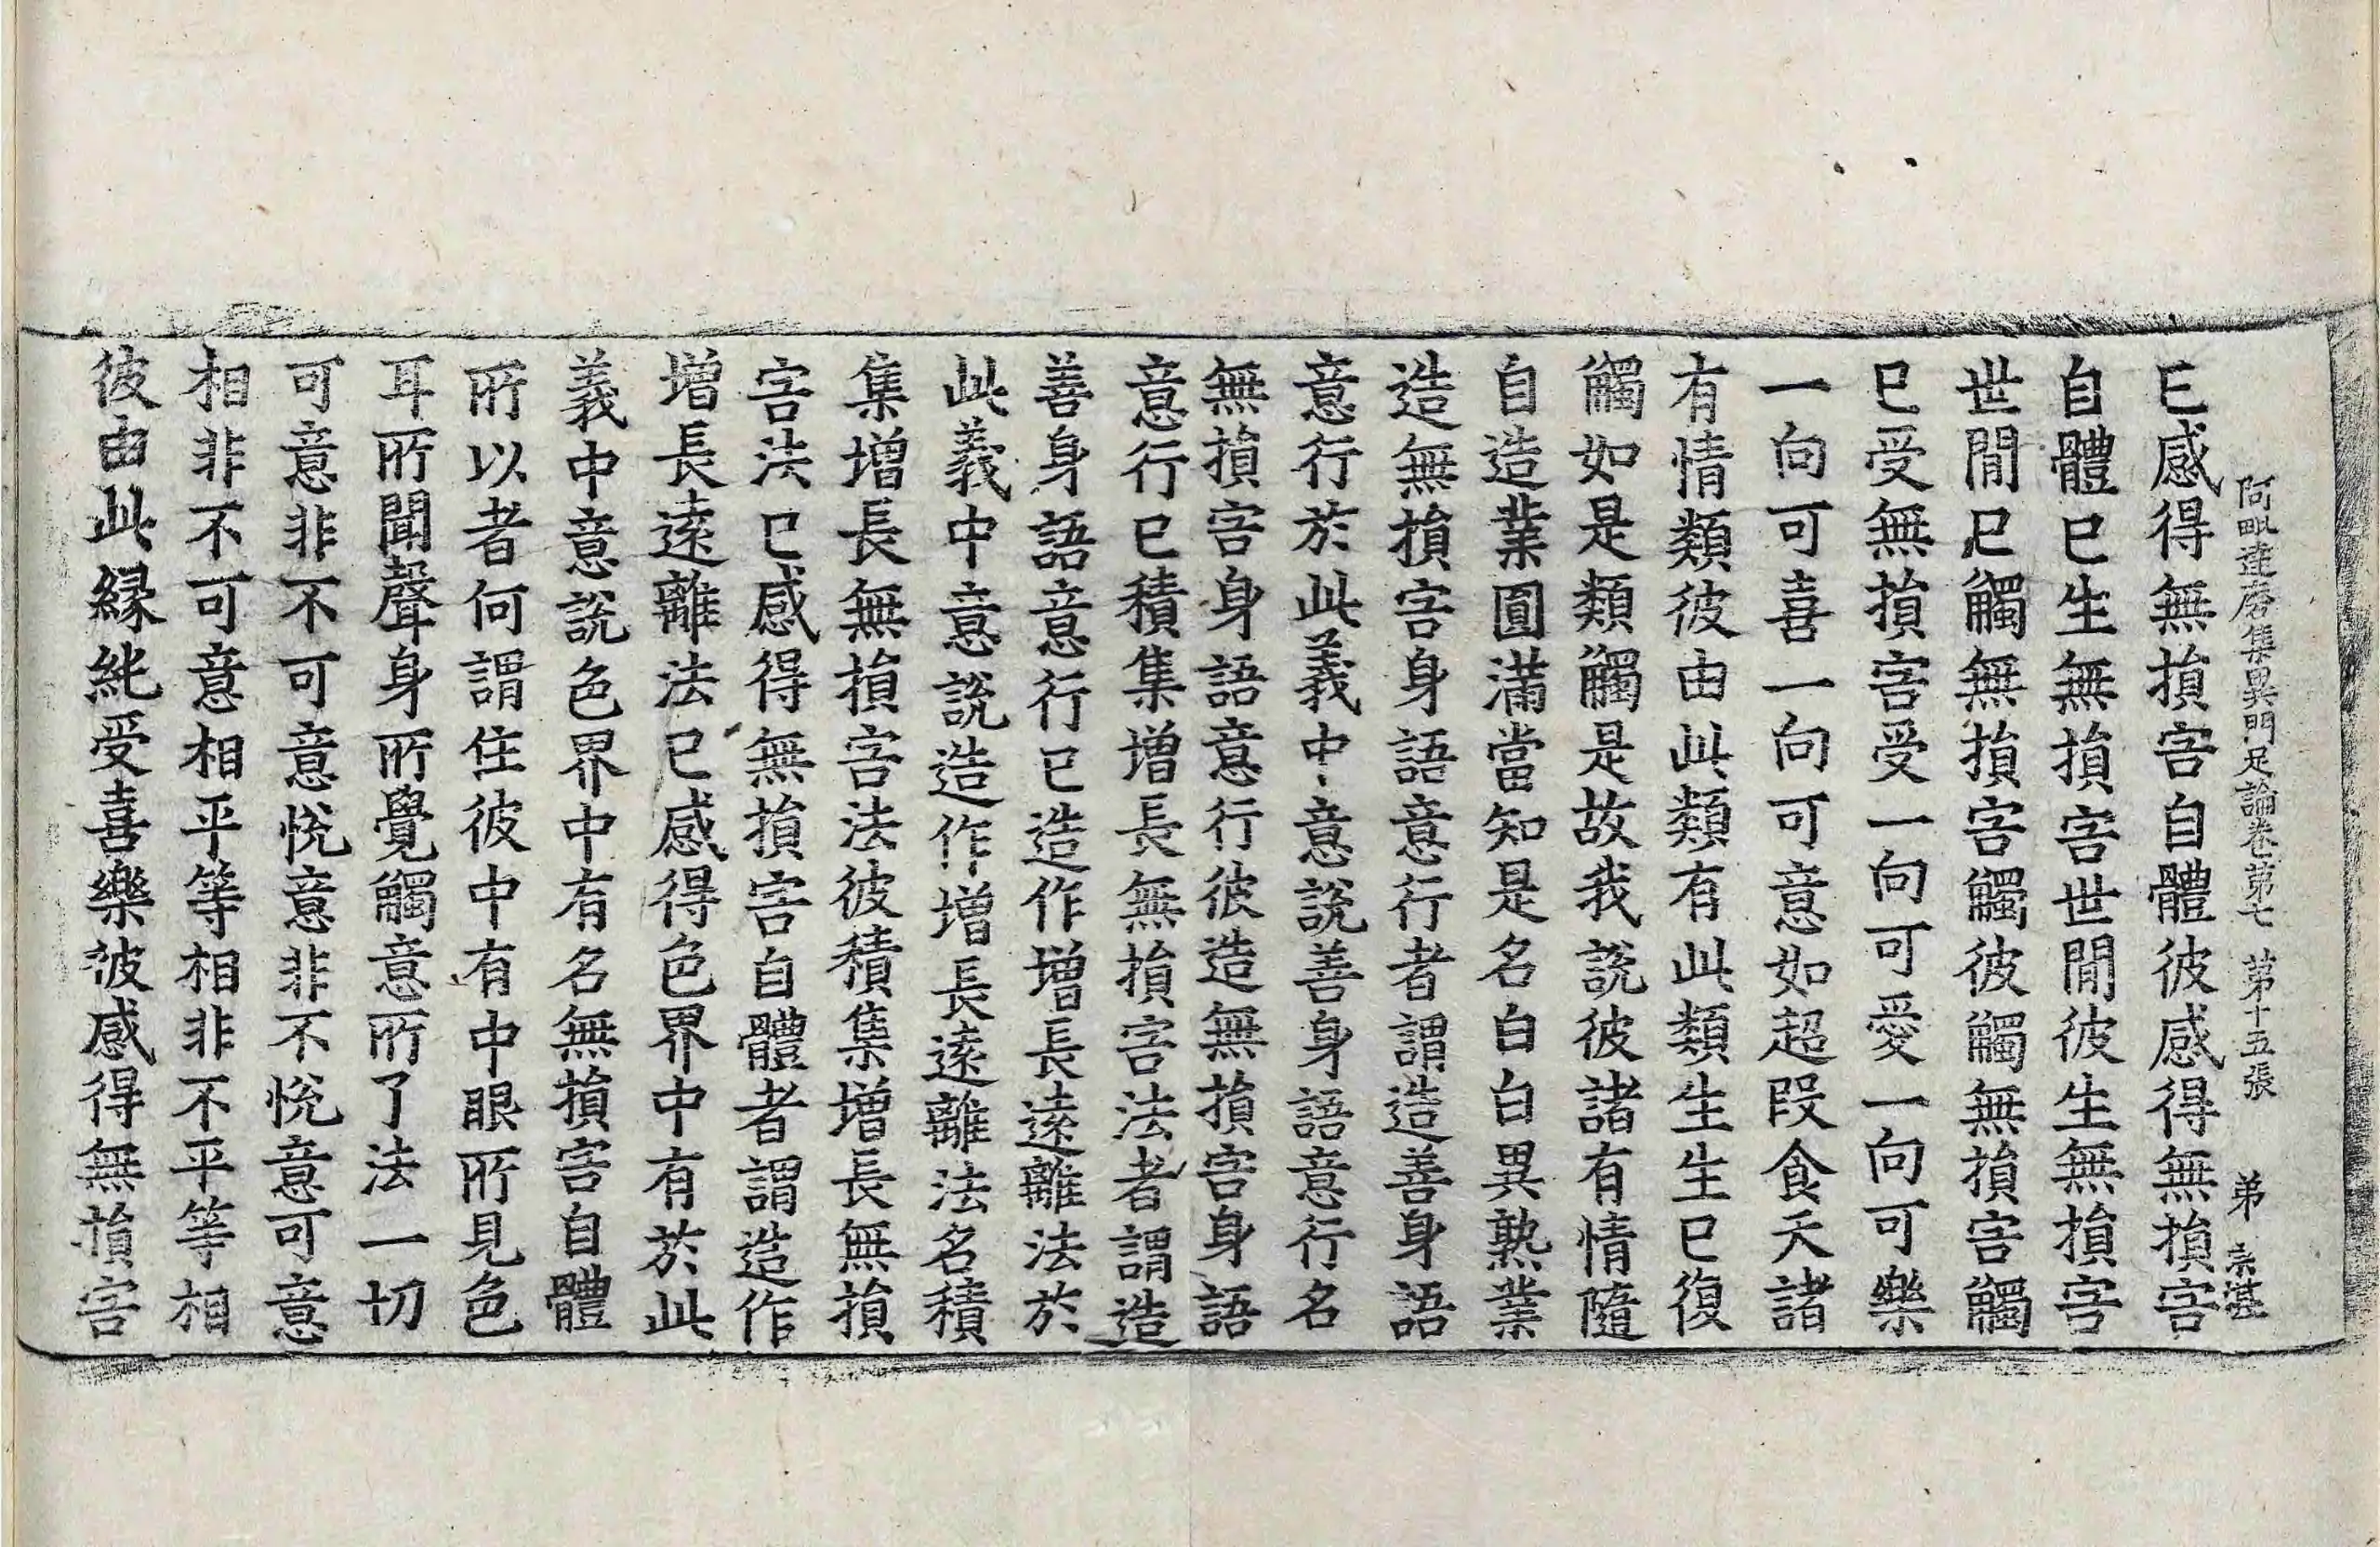 阿毗達磨集異門足論卷第七 第十五張 弟
已感得無損害自體彼感得無損害
自體已生無損害世間彼生無損害
世間已觸無損害觸彼觸無損害觸
已受無損害受一向可愛一向可樂
一向可喜一向可意如超段食天諸
有情類彼由此類有此類生生已復
觸如是類觸是故我說彼諸有情隨
自造業圓滿當知是名白白異熟業
造無損害身語意行者謂造善身語
意行於此義中意說善身語意行名
無損害身語意行彼造無損害身語
意行已積集增長無損害法者謂造
善身語意行已造作增長遠離法於
此義中意說造作增長遠離法名積
集增長無損害法彼積集增長無損
害法已感得無損害自體者謂造作
增長遠離法已感得色界中有於此
義中意說色界中有名無損害自體
所以者何謂住彼中有中眼所見色
耳所聞聲身所覺觸意所了法一切
可意非不可意悅意非不悅意可意
相非不可意相平等相非不平等相
彼由此緣純受喜樂彼感得無損害